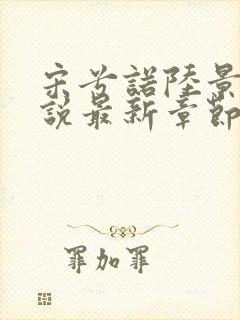 宋兮諾陸景
說最新章節
罪加罪